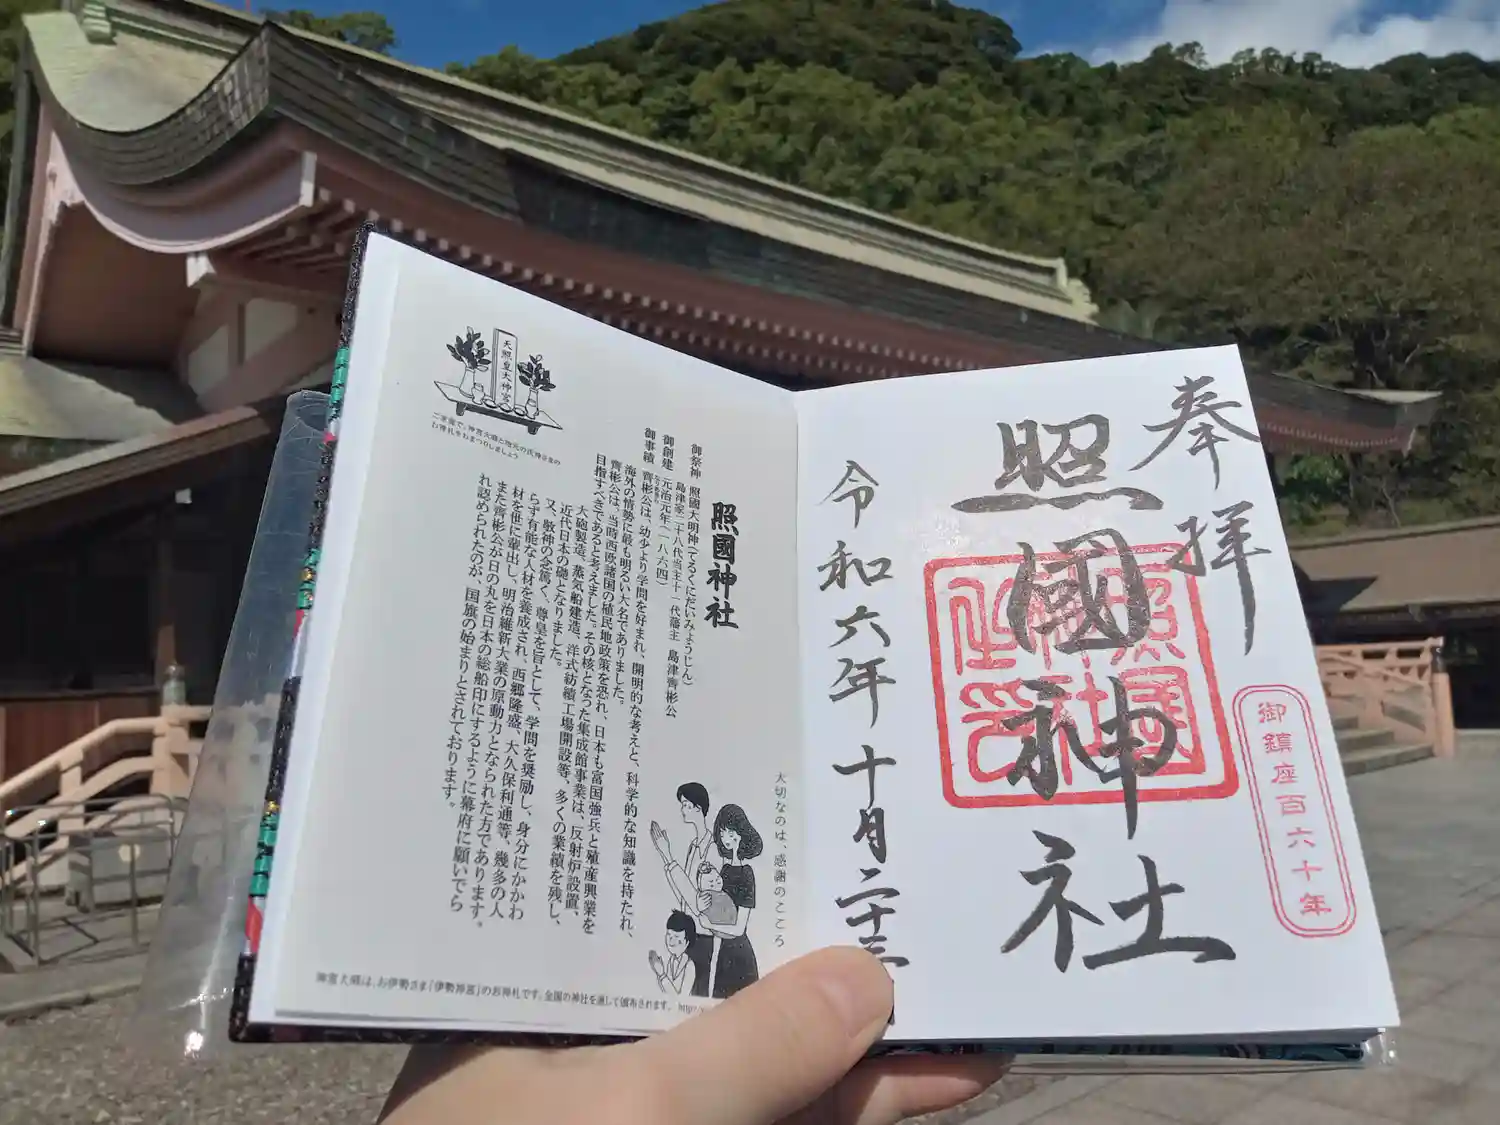 奉拝
照國神社
照國神社印
御鎮座百六十年
令和六年十月二十三
照國神社
御祭神 照國大明神(てるくにだいみょうじん)
島津家二十八代当主十一代藩主 島津齊彬公
御創建 元治元年(一八六四)
御事績 齊彬公は、幼少より学問を好まれ、開明的な考えと、科学的な知識を持たれ、
海外の情勢に最も明るい大名でありました。
齊彬公は、当時西欧諸国の植民地政策を恐れ、日本も富国強兵と殖産興業を
目指すべきであると考えました。その核となった集成館事業は、反射炉設置、
大砲製造、蒸気船建造、洋式紡績工場開設等、多くの業績を残し、
近代日本の礎となりました。
又、敬神の念篤く、尊皇を旨として、学問を奨励し、身分にかかわ
らず有能な人材を養成され、西郷隆盛、大久保利通等、幾多の人
材を世に輩出し、明治維新大業の原動力となられた方であります。
また齊彬公が日の丸を日本の総船印にするように幕府に願いでら
れ認められたのが、国旗の始まりとされております。
天照皇大神宮
ご家庭で、神宮大麻と地元の氏神さまの
お神札をおまつりしましょう
大切なのは、感謝のこころ
神宮大麻は、お伊勢さま「伊勢神宮」のお神札です。全国の神社を通して頒布されます。 http